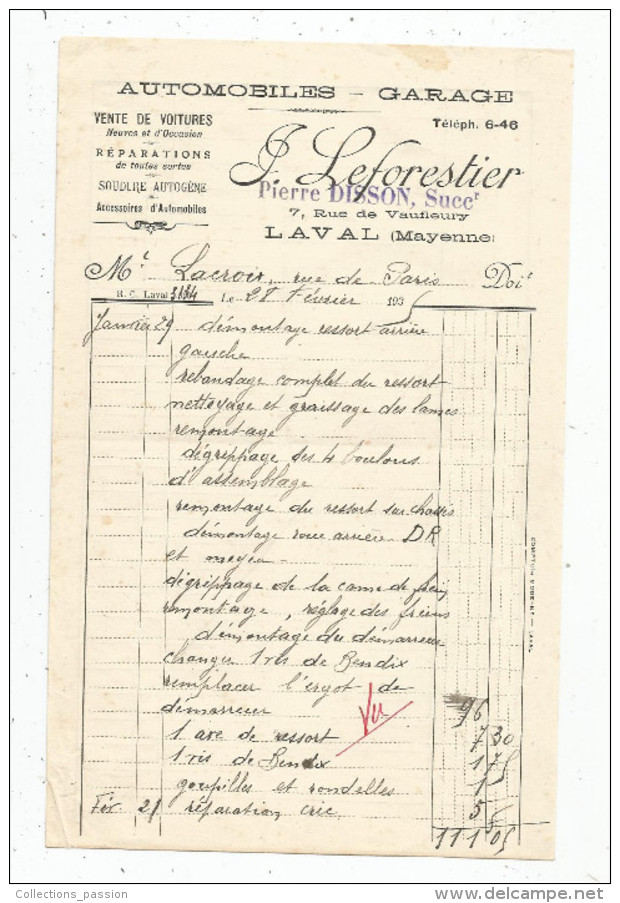 AUTOMOBILES - GARAGE
VENTE DE VOITURES
Neuves et d'Occasion
RÉPARATIONS
de toutes sortes
SOUDURE AUTOGÈNE
Accessoires d'Automobiles
Téléph. 6-46
J. Leforestier
Pierre DISSON, Succr
7, Rue de Vaufleury
LAVAL (Mayenne)
Mr Lacroix, rue de Paris Doit
R. C. Laval 3134 Le 28 Février 1935
Janvier 29 démontage ressort arrière
gauche
rebandage complet du ressort
nettoyage et graissage des lames
remontage
dégrippage des 4 boulons
d'assemblage
remontage du ressort sur chassis
démontage roue arrière DR
et moyeu
dégrippage de la came de frein
remontage, réglage des freins
démontage du démarreur
changer 1 vis de Bendix
remplacer l'ergot de
démarreur 96
Vu
1 axe de ressort 7 30
1 vis de Bendix 1 75
goupilles et rondelles 1
Fév. 21 réparation cric 5
111 05
Collections_passion
delcampe.net